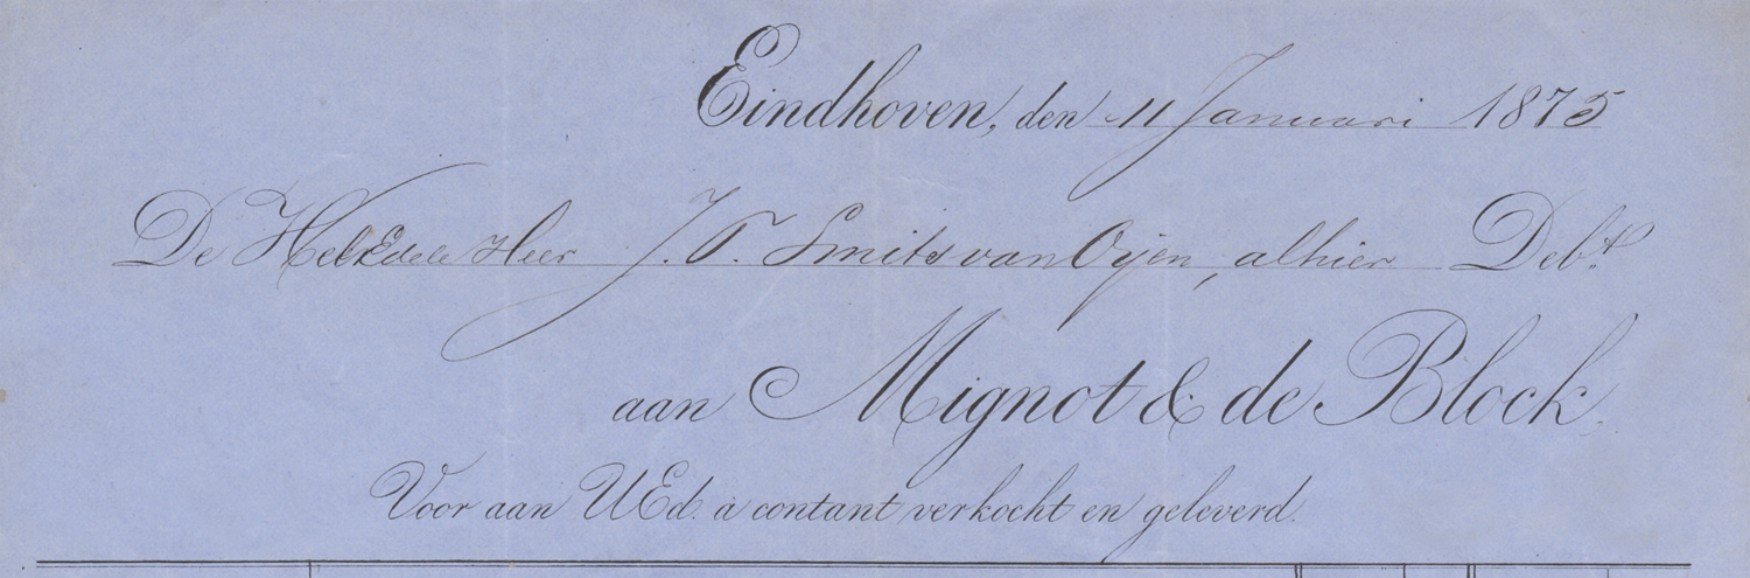 Eindhoven, den 11 Januari 1875
De HelEdele Heer J. T. Smits van Oijen, alhier Deb.t
aan Mignot & de Block.
Voor aan UEd. à contant verkocht en geleverd.